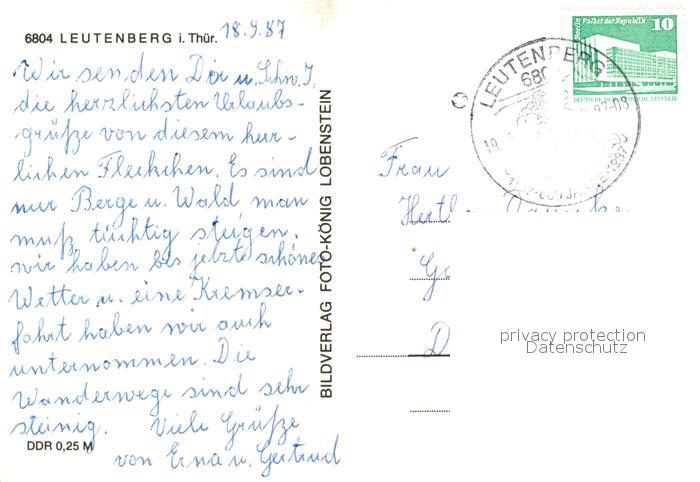 6804 LEUTENBERG i. Thür. 18.9.87
Wir senden Dir u. Schw. I.
die herzlichsten Urlaubs-
grüße von diesem herr-
lichen Fleckchen. Es sind
nur Berge u. Wald man
muß tüchtig steigen.
wir haben bis jetzt schönes
Wetter u. eine Kremser-
fahrt haben wir auch
unternommen. Die
Wanderwege sind sehr
steinig. Viele Grüße
von Erna u. Gertrud
DDR 0,25 M
BILDVERLAG FOTO-KÖNIG LOBENSTEIN
Berlin Palast der Republik 10
DEUTSCHE DEMOKRATISCHE REPUBLIK
LEUTENBERG
Frau
privacy protection
Datenschutz